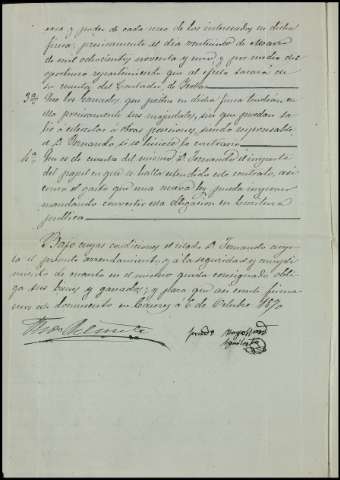 casa y poder de cada uno de los interesados en dicha
finca, precisamente el dia veintinueve de Marzo
de mil ochocientos noventa y uno, y por medio de
oportuno repartimiento que al efecto sacará en
su cuenta del Contador de
3ª Que los Ganados que pasten en dicha finca tendrán, en
ella precisamente sus majadales, sin que puedan sa-
lir a otras posesiones, siendo responsable
el D. Fernando si se hiciese lo contrario
4ª Que es de cuenta del mismo D. Fernando el importe
del papel en que se halla estendido este contrato, así
como el gasto que una nueva ley pueda imponer
mandando convertir esta obligacion en Escritura
publica
Bajo cuyas condiciones el citado D. Fernando acep-
ta el presente arrendamiento, y a la seguridad y cumpli-
miento de cuanto en el mismo queda consignado obli-
ga sus bienes y ganados; y para que asi conste firma-
mos el documento en Cáceres a 6 de Octubre 1890